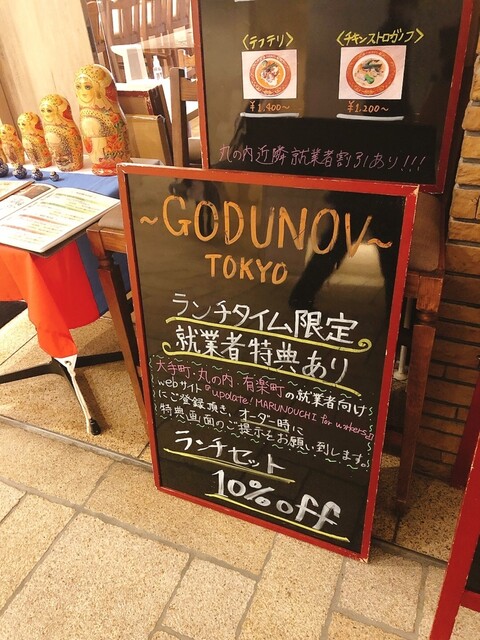 〈テフテリ〉 〈チキンストロガノフ〉
¥1,400〜 ¥1,200〜
丸の内近隣就業者割引あり!!!
~GODUNOV~
TOKYO
ランチタイム限定
就業者特典あり
大手町・丸の内・有楽町の就業者向け
webサイト『update! MARUNOUCHI for workers』
にご登録頂き、オーダー時に
特典画面のご提示をお願い致します。
ランチセット
10%off